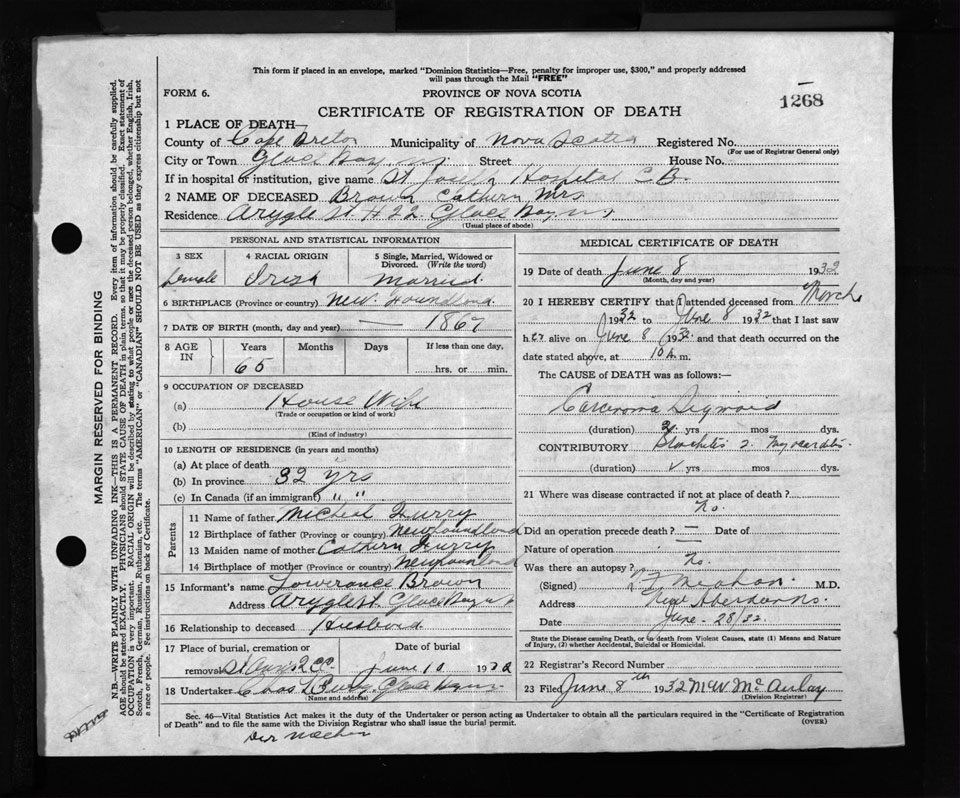 This form if placed in an envelope, marked "Dominion Statistics—Free, penalty for improper use, $300," and properly addressed
will pass through the Mail "FREE"
FORM 6.
PROVINCE OF NOVA SCOTIA
1268
CERTIFICATE OF REGISTRATION OF DEATH
1 PLACE OF DEATH—
County of Cape Breton Municipality of Nova Scotia Registered No.
(For use of Registrar General only)
City or Town Glace Bay, N.S. Street House No.
If in hospital or institution, give name St Joseph Hospital C.B.
2 NAME OF DECEASED Brown Cathern Mrs
Residence Arygle St # 22 Glace Bay N.S
(Usual place of abode)
PERSONAL AND STATISTICAL INFORMATION
3 SEX
female
4 RACIAL ORIGIN
Irish
5 Single, Married, Widowed or
Divorced. (Write the word)
Married
6 BIRTHPLACE (Province or country) New Foundland
7 DATE OF BIRTH (month, day and year) — 1867
8 AGE IN
Years Months Days If less than one day,
65 hrs. or min.
9 OCCUPATION OF DECEASED
(a) House Wife
(Trade or occupation or kind of work)
(b)
(Kind of industry)
10 LENGTH OF RESIDENCE (in years and months)
(a) At place of death
(b) In province 32 yrs
(c) In Canada (if an immigrant) " "
Parents
11 Name of father Micheal Furry
12 Birthplace of father (Province or country) Newfoundland
13 Maiden name of mother Cathern Furry
14 Birthplace of mother (Province or country) Newfoundland
15 Informant's name Lowerance Brown
Address Arygle St. Glace Bay N.S
16 Relationship to deceased Husband
17 Place of burial, cremation or Date of burial
removal June 10 1932
18 Undertaker Glace Bay
Name and address)
MEDICAL CERTIFICATE OF DEATH
19 Date of death June 8 1932
(Month, day and year)
20 I HEREBY CERTIFY that I attended deceased from March
1932 to June 8 1932 that I last saw
her alive on June 8 1932 and that death occurred on the
date stated above, at 10 A. m.
The CAUSE of DEATH was as follows:—
Carcinoma Sigmoid
(duration) yrs mos dys.
CONTRIBUTORY Bronchitis Myocarditis
(duration) yrs mos dys.
21 Where was disease contracted if not at place of death?
No.
Did an operation precede death? — Date of
Nature of operation —
Was there an autopsy? No.
(Signed) Meahan. M.D.
Address New Aberdeen N.S.
Date June - 28/32.
State the Disease causing Death, or in death from Violent Causes, state (1) Means and Nature
of Injury, (2) whether Accidental, Suicidal or Homicidal.
22 Registrar's Record Number
23 Filed June 8th 1932 McAulay
(Division Registrar)
Sec. 46—Vital Statistics Act makes it the duty of the Undertaker or person acting as Undertaker to obtain all the particulars required in the "Certificate of Registration
of Death" and to file the same with the Division Registrar who shall issue the burial permit. (OVER)
MARGIN RESERVED FOR BINDING
N.B.—WRITE PLAINLY WITH UNFADING INK—THIS IS A PERMANENT RECORD. Every item of information should be carefully supplied.
AGE should be stated EXACTLY. PHYSICIANS should STATE CAUSE OF DEATH in plain terms, so that it may be properly classified. Exact statement of
OCCUPATION is very important. RACIAL ORIGIN will be described by stating to what people or race the deceased person belonged, whether English, Irish,
Scotch, French, German, Russian, Ruthenian, etc. The terms "AMERICAN" or "CANADIAN" SHOULD NOT BE USED as they express citizenship but not
a race or people. See instructions on back of Certificate.